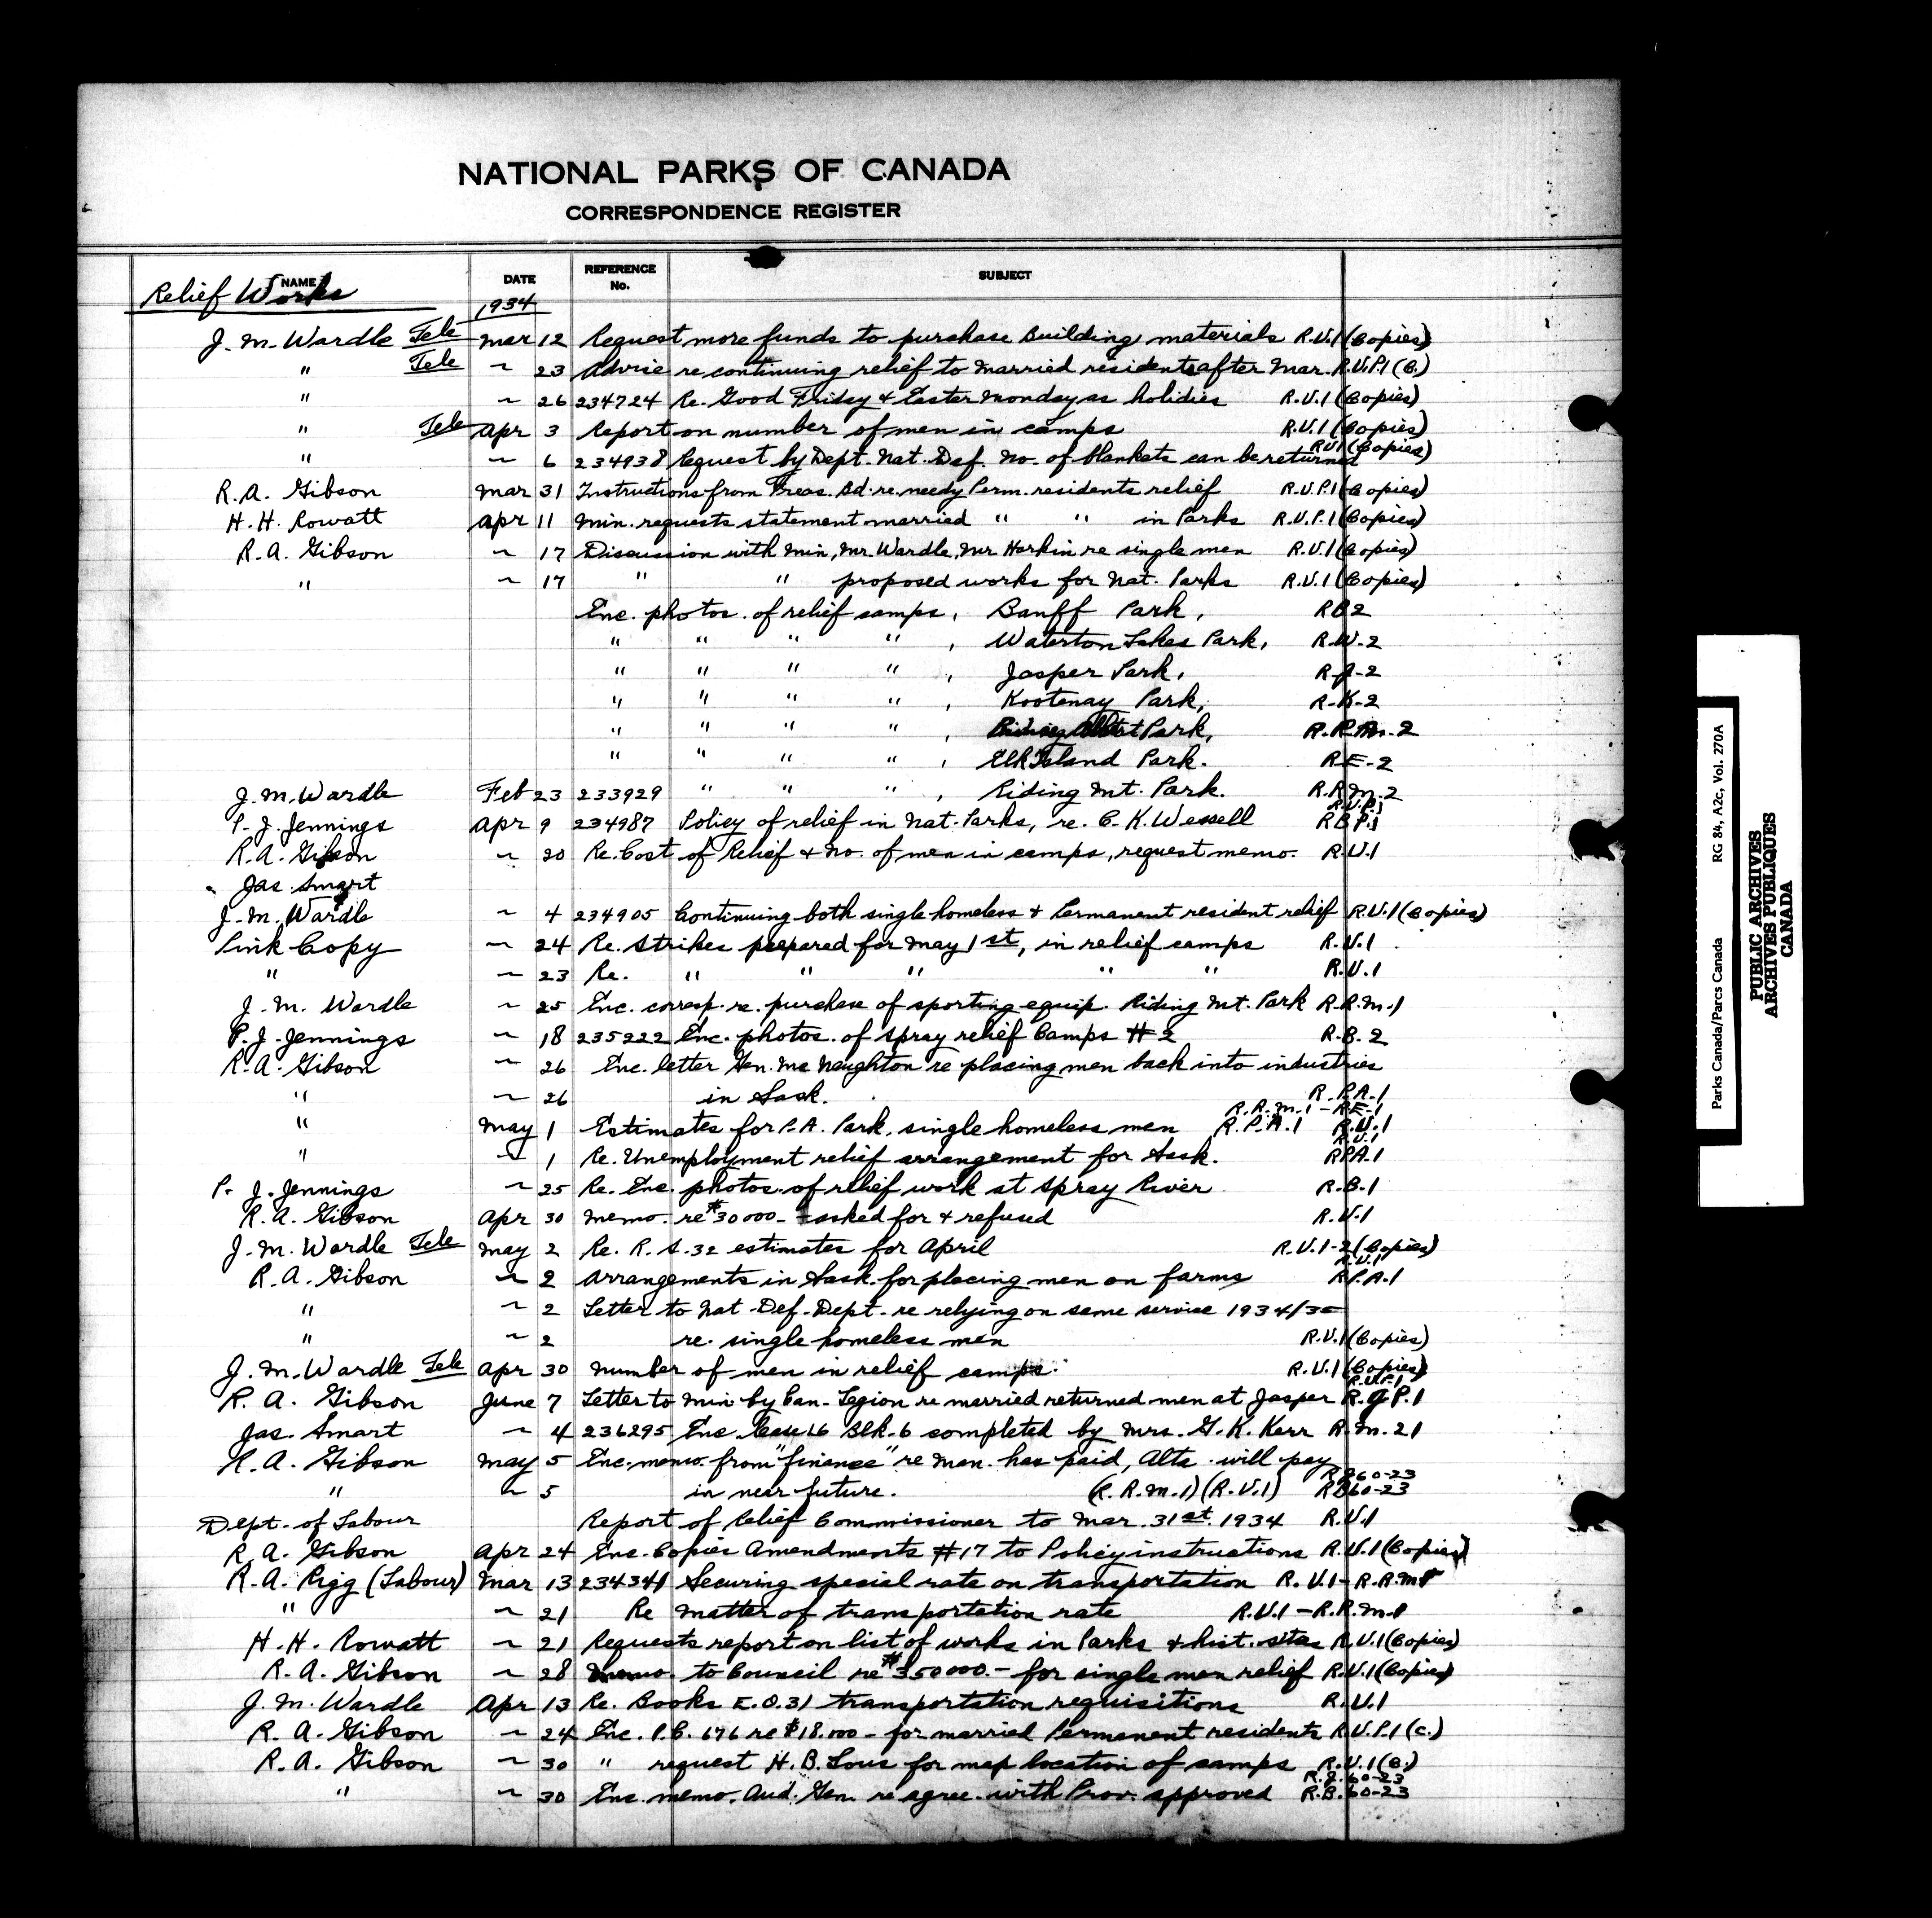 NATIONAL PARKS OF CANADA
CORRESPONDENCE REGISTER
NAME DATE REFERENCE No. SUBJECT
Relief Works 1934
J. M. Wardle Tele Mar 12 Request more funds to purchase Building materials R.V.1 (Copies)
" Tele ~ 23 Advise re continuing relief to married residents after Mar. R.V.P.1 (C.)
" ~ 26 234724 Re. Good Friday & Easter Monday as holidies R.V.1 (Copies)
" Tele Apr 3 Report on number of men in camps R.V.1 (Copies)
" ~ 6 234938 Request by Dept. Nat. Def. No. of blankets can be returned R.V.1 (Copies)
R. A. Gibson Mar 31 Instructions from Treas. Bd. re. needy Perm. residents relief R.V.P.1 (Copies)
H. H. Rowatt Apr 11 Min. requests statement married " " in Parks R.V.P.1 (Copies)
R. A. Gibson ~ 17 Discussion with Min, Mr. Wardle, Mr Harkin re single men R.V.1 (Copies)
" ~ 17 " " proposed works for Nat. Parks R.V.1 (Copies)
Enc. photos. of relief camps, Banff Park, RB2
" " " " , Waterton Lakes Park, R.W.2
" " " " , Jasper Park, R-J-2
" " " " , Kootenay Park, R-K-2
" " " " , Albert Park,
" " " " , Elk Island Park. R-E-2
J. M. Wardle Feb 23 233929 " " " " , Riding Mt. Park. R.R.M.2
P. J. Jennings Apr 9 234987 Policy of relief in Nat. Parks, re. C. K. Wessell R.V.P.1 RBP.1
R. A. Gibson ~ 20 Re. Cost of Relief & No. of men in camps, request memo. R.V.1
Jas. Smart
J. M. Wardle ~ 4 234905 Continuing both single homeless & Permanent resident relief R.V.1 (Copies)
Pink Copy ~ 24 Re. Strikes prepared for May 1st, in relief camps R.V.1
" ~ 23 Re. " " " " " R.V.1
J. M. Wardle ~ 25 Enc. corresp. re. purchase of sporting equip. Riding Mt. Park R.R.M.1
P. J. Jennings ~ 18 235222 Enc. photos. of Spray relief Camps #2 R.B.2
R. A. Gibson ~ 26 Enc. letter Gen. McNaughton re placing men back into industries
" ~ 26 in Sask. R.P.A.1
R.R.M.1 - R.E.1
" May 1 Estimates for P.A. Park. single homeless men R.P.A.1 R.V.1
" ~ 1 Re. Unemployment relief arrangement for Sask. R.V.1 RPA.1
P. J. Jennings ~ 25 Re. Enc. photos. of relief work at Spray River R.B.1
R. A. Gibson Apr 30 Memo. re $30000.- asked for & refused R.V.1
J. M. Wardle Tele May 2 Re. R.S.32 estimates for April R.V.1-2 (Copies)
R. A. Gibson ~ 2 Arrangements in Sask. for placing men on farms R.V.1 RP.A.1
" ~ 2 Letter to Nat. Def. Dept. re relying on same service 1934/35
" ~ 2 re. single homeless men R.V.1 (Copies)
J. M. Wardle Tele Apr 30 Number of men in relief camps. R.V.1 (Copies)
R. A. Gibson June 7 Letter to Min by Can. Legion re married returned men at Jasper R.V.P.1 R.J.P.1
Jas. Smart ~ 4 236295 Enc 16 Blk-6 completed by Mrs. G. K. Kerr R.M.21
R. A. Gibson May 5 Enc. memo. from "finance" re Man. has paid, Alta. will pay
" ~ 5 in near future. (R.R.M.1) (R.V.1) R J60-23 RB60-23
Dept. of Labour Report of Relief Commissioner to Mar. 31st. 1934 R.V.1
R. A. Gibson Apr 24 Enc. Copies Amendments #17 to Policy instructions R.V.1 (Copies)
R. A. Rigg (Labour) Mar 13 234341 Securing special rate on transportation R.V.1 - R.R.M.1
" ~ 21 Re matter of transportation rate R.V.1 - R.R.M.1
H. H. Rowatt ~ 21 Requests report on list of works in Parks & hist. sites R.V.1 (Copies)
R. A. Gibson ~ 28 Memo to Council re $350000.- for single men relief R.V.1 (Copies)
J. M. Wardle Apr 13 Re. Books E.O.31 transportation requisitions R.V.1
R. A. Gibson ~ 24 Enc. P.C. 676 re $18.000- for married Permanent residents R.V.P.1 (C.)
R. A. Gibson ~ 30 " request H. B. for map location of camps R.V.1 (C.)
" ~ 30 Enc. memo. Aud. Gen. re agree. with Prov. approved R.J.60-23 R.B.60-23
Parks Canada/Parcs Canada RG 84, A2c, Vol. 270A
PUBLIC ARCHIVES
ARCHIVES PUBLIQUES
CANADA